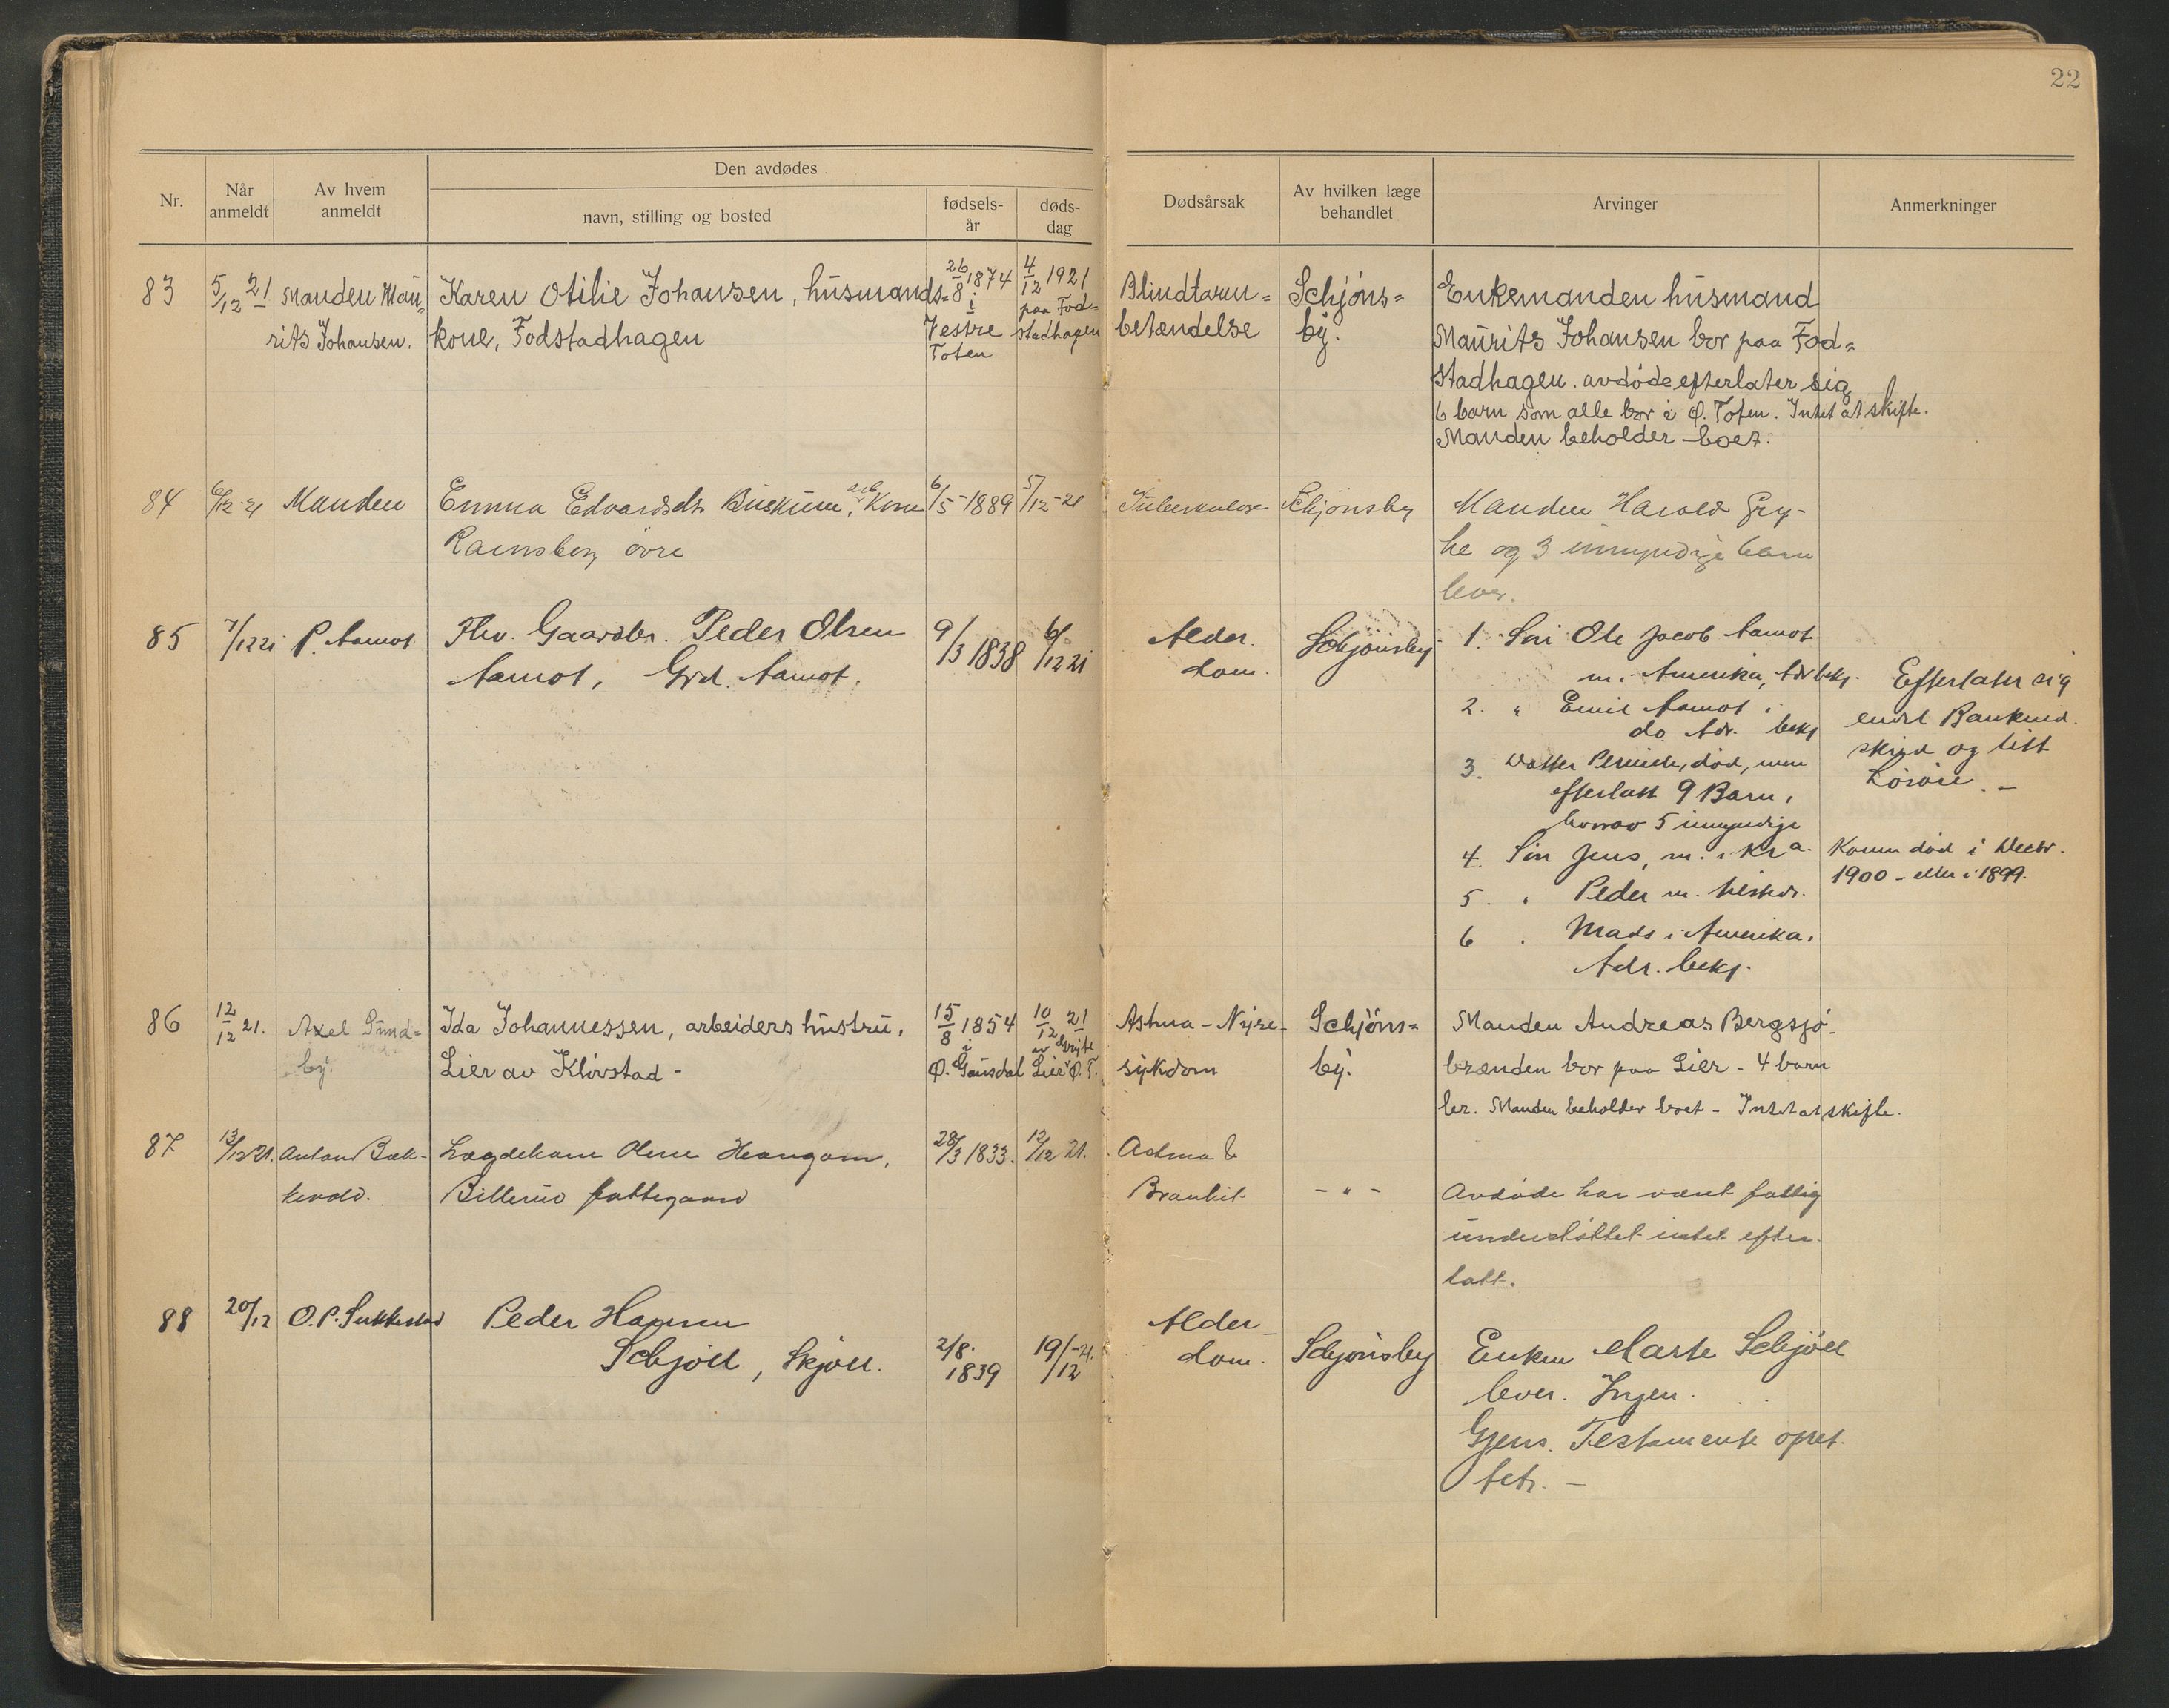 22
Den avdødes
Nr.
Når anmeldt
Av hvem anmeldt
navn, stilling og bosted
fødsels-år
døds-dag
Dødsårsak
Av hvilken læge behandlet
Arvinger
Anmerkninger
83
5/12 21
Manden Mau-
rits Johansen.
Karen Otilie Johansen, husmands-
kone, Fodstadhagen
26/8 1874
i
Vestre
Toten
4/12 1921
paa Fod-
stadhagen
Blindtarm-
betændelse
Schjøns-
by.
Enkemanden husmand
Maurits Johansen bor paa Fod-
stadhagen. avdøde efterlater sig
6 barn som alle bor i Ø. Toten. Intet at skifte.
Manden beholder boet.
84
6/12-21
Manden
Emma Edvardsdtr. Buskum, arb. Kone
Ramsberg øvre
6/5-1889
5/12-21
Tuberkulose
Schjønsby
Manden Harald Gry-
he og 3 umyndige barn
lever.
85
7/12 21
P. Aamot
Fhv. Gaardbr. Peder Olsen
Aamot, Grd. Aamot.
9/3 1838
6/12 21
Alder-
dom.
Schjønsby
1. Søn Ole Jacob Aamot
m. i Amerika, Adr bekj.
2. " Emil Aamot i
do. Adr. bekj
3. Datter Pernille, død, men
efterlatt 9 Barn,
hvorav 5 umyndige
4. Søn Jens, m. i Kra.
5. " Peder m.
6 " Mads i Amerika,
Adr. bekj.
Efterlater sig
endel Bankind-
skyd og litt
Løsøre. -
Konen død i Decbr.
1900 - eller i 1899.
86
12/12 21.
Axel Sund-
by.
Ida Johannessen, arbeiders hustru,
Lier av Kløvstad -
15/8 1854
i
Ø. Gausdal
10/12 21
Lier Ø. T.
Astma - Nyre-
sykdom
Schjøns-
by.
Manden Andreas Bergsjø-
brænden bor paa Lier - 4 barn
lev. Manden beholder boet - Intet at skifte.
87
13/12 21.
Anton Bæk-
kevold.
Lægdekone Oline Haugom,
Billerud fattiggaard
28/3 1833.
12/12 21.
Astma &
Bronkit
- " -
Avdøde har været fattig
understøttet intet efter-
latt.
88
20/12
O. P. Sukkestad
Peder Hansen
Schjøll, Skjøll.
2/8.
1839
19/12-21.
Alder-
dom.
Schjønsby
Enken Marte Schjøll
lever. Ingen
Gjens. Testamente opret-
tet. -